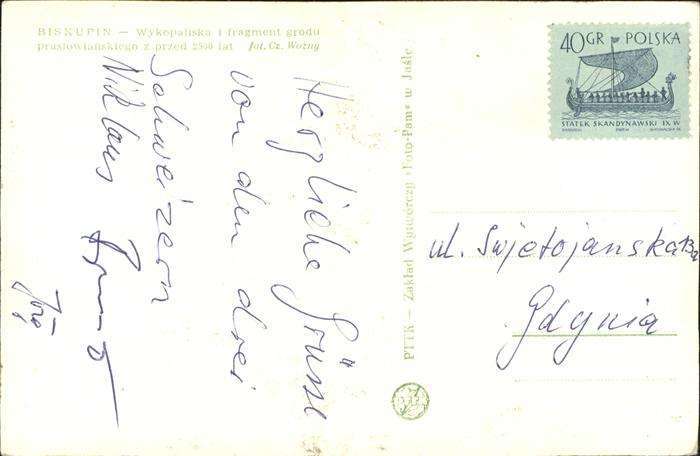 BISKUPIN — Wykopaliska i fragment grodu
prasłowiańskiego z przed 2500 lat fot. Cz. Woźny
Herzliche Grüsse
von den drei
Schweizern
Niklaus
Jörg
PTTK — Zakład Wytwórczy «Foto-Pam» w Jaśle
40GR POLSKA
STATEK SKANDYNAWSKI IX W
ul. Swjetojanska
Gdynia